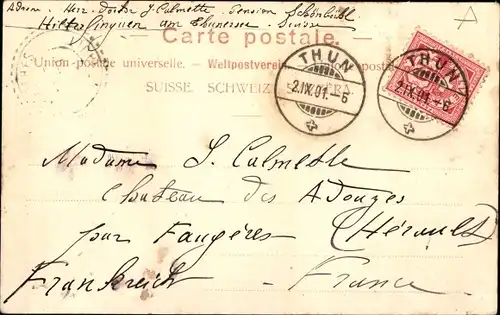 Adresse: Herr Doctor J. Calmette, Pension Schönbühl
Hilterfinguen am Thunersee - Suisse
Carte postale.
Union postale universelle. - Weltpostverein. - postale
SUISSE. SCHWEIZ. SVIZZERA.
THUN
2.IX.01.-6
THUN
2.IX.01.-6
Madame J. Calmette
château des Adouzes
par Faugères (Hérault)
Frankreich - France